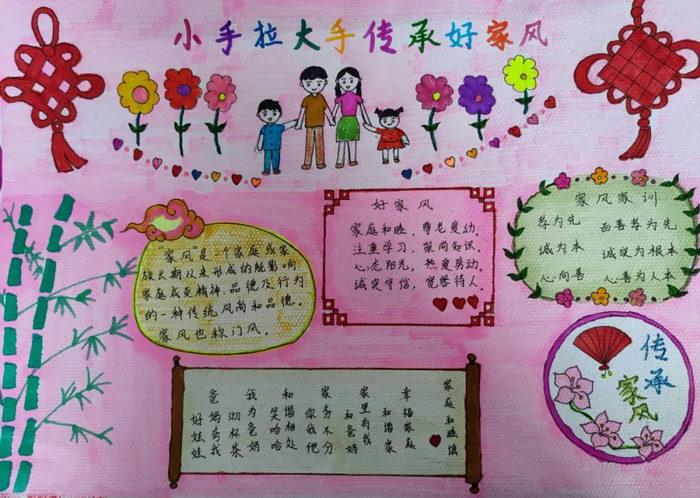 小手拉大手传承好家风
"家风"是一个家庭或家
族长期以来形成的能影响
家庭成员精神、品德及行为
的一种传统风尚和品德。
家风也称门风。
好家风
家庭和睦，尊老爱幼。
注重学习，崇尚知识。
心态阳光，热爱劳动。
诚实守信，宽容待人。
家风家训
孝为先 百善孝为先
诚为本 诚实为根本
心向善 心善为人本
家庭和睦
幸福家庭和谐家
家里有我和爸妈
家务不分你我他
和谐相处笑哈哈
我为爸妈沏杯茶
爸妈夸我好娃娃
传承
家风